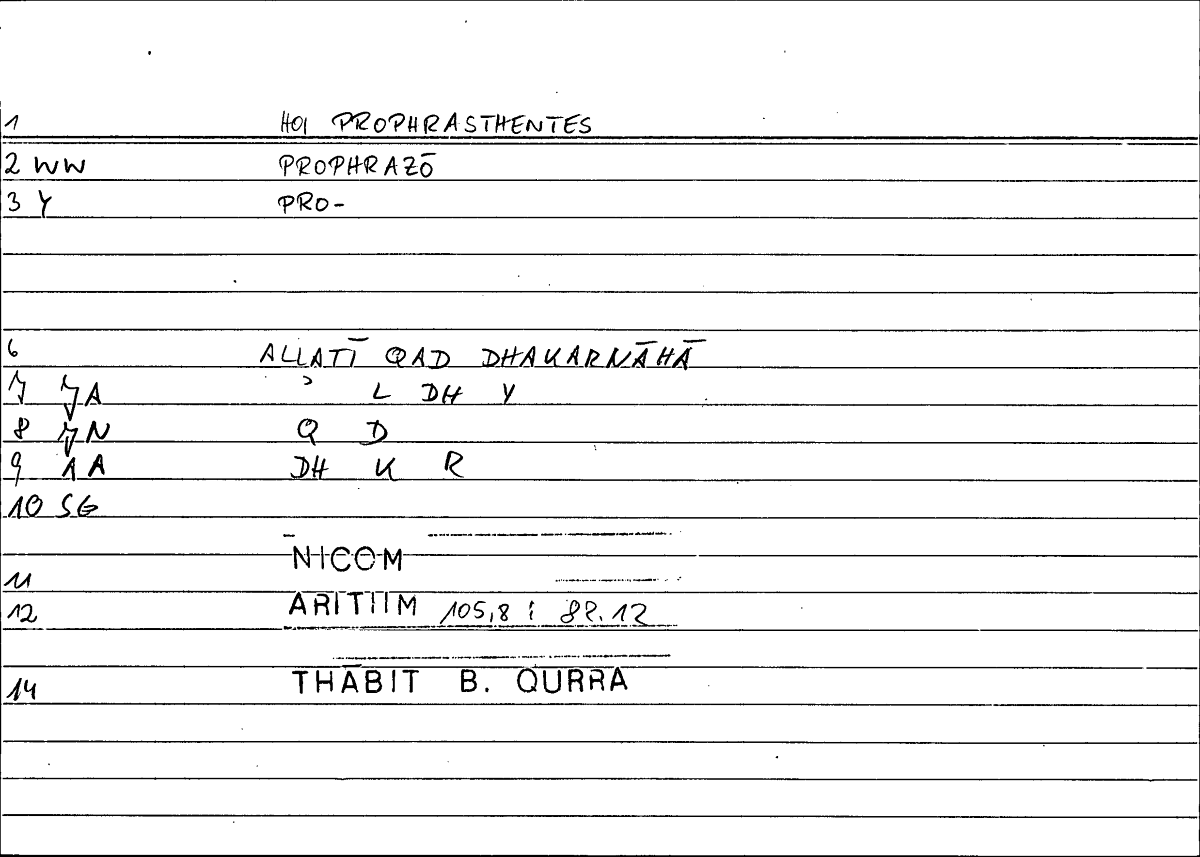 1 HOI PROPHRASTHENTES
2 WW PROPHRAZŌ
3 Y PRO-
6 ALLATĪ QAD DHAKARNĀHĀ
7 7A ʾ L DH Y
8 7N Q D
9 1A DH K R
10 SG
NICOM
11
12 ARITIIM 105,8 ; 82.12
14 THĀBIT B. QURRA